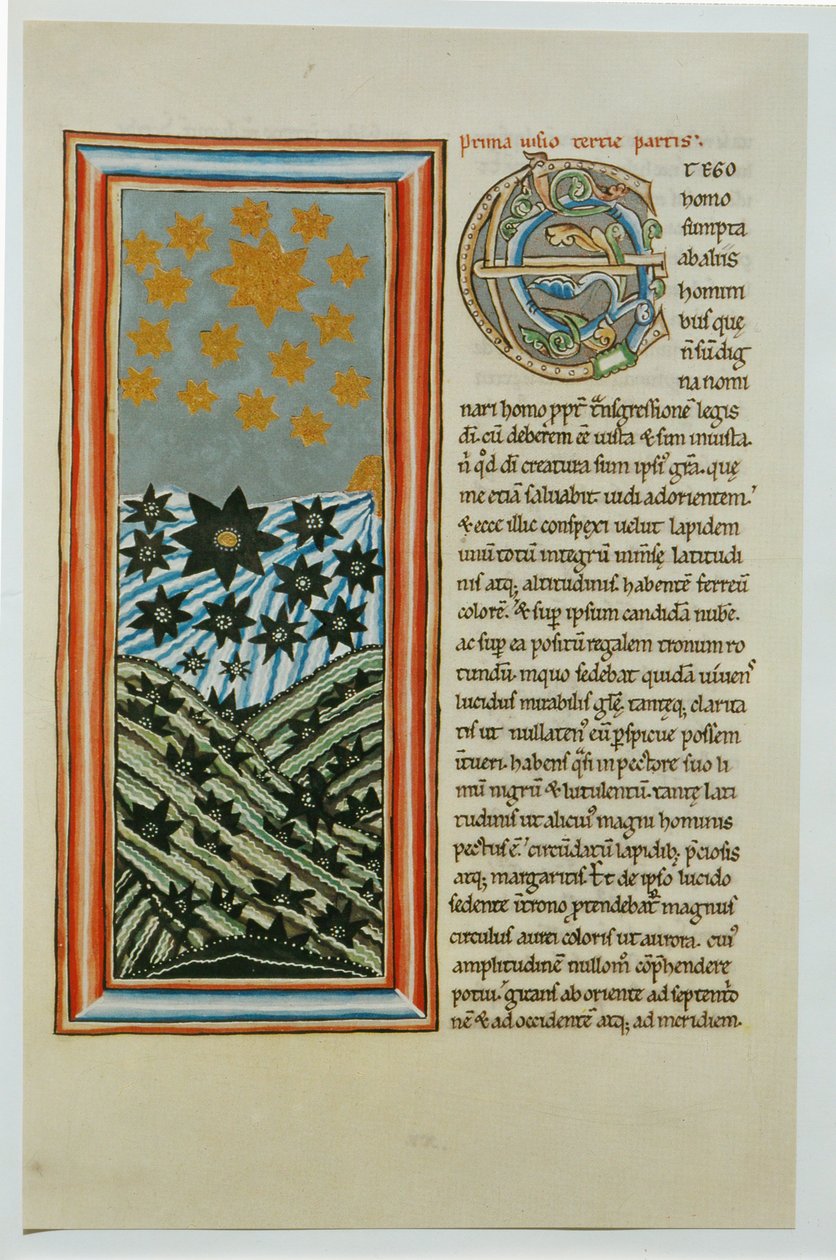 Prima uisio tertie partis:.
ET EGO
homo
sumpta
ab aliis
homini
bus quę
n̄ sū dig
na nomi
nari homo ꝓpt̄ t̄nsgressionē legis
dī. cū deberem ēē iusta & sum iniusta.
n̄ qđ dī creatura sum ipsiꝰ grā. quę
me etiā saluabit uidi ad orientem.
& ecce illic conspexi uelut lapidem
unū totū integrū inmēsę latitudi
nis atq; altitudinis. habentē ferreū
colorē. & suꝑ ipsum candidā nubē.
ac suꝑ ea positū regalem tronum ro
tundū. in quo sedebat quidā uiuens
lucidus mirabilis glę̄. tantęq; clarita
tis ut nullatenꝰ eū ꝑspicue possem
ītueri. habens q̄si in pectore suo li
mū nigrū & lutulentū. tantę lati
tudinis ut alicuiꝰ magni hominis
pectus ē. circūdatū lapidib; p̄ciosis
atq; margaritis. Et de ipso lucido
sedente ī trono ꝓtendebat̄ magnus
circulus aurei coloris ut aurora. cuiꝰ
amplitudinē nullom̊ cōp̄hendere
potui. girans ab oriente ad septent̄o
nē & ad occidentē atq; ad meridiem.